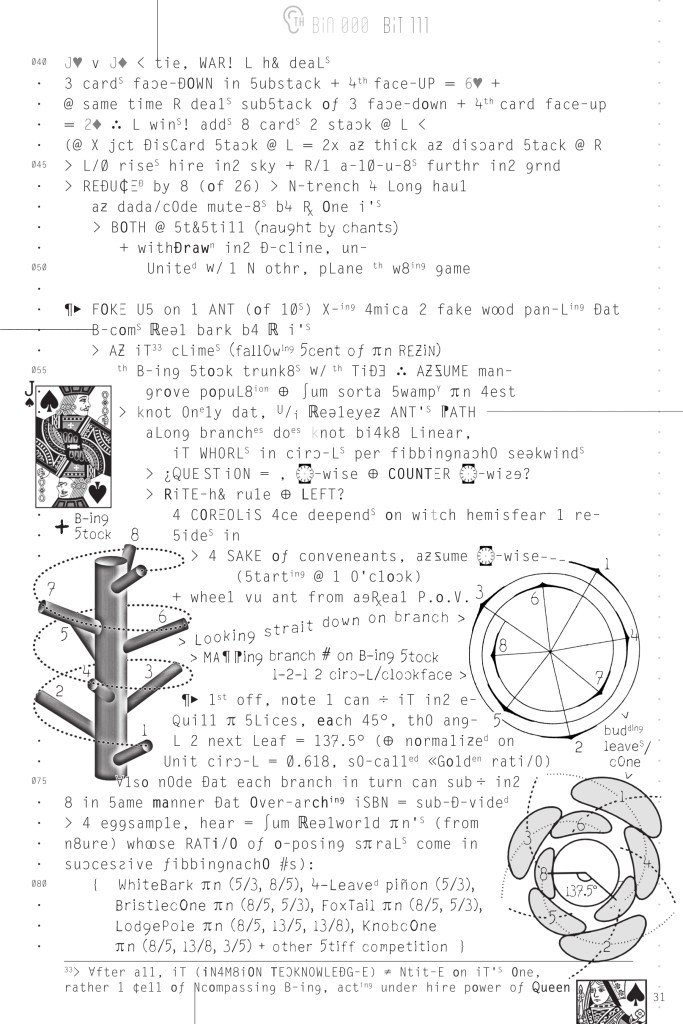 TH BiN 000 BiT 111
040 J♥ v J♦ < tie, WAR! L h& deaLˢ
3 cardˢ faɔe-ÐOWN in 5ubstack + 4ᵗʰ face-UP = 6♥ +
@ same time R dealˢ sub5tack of 3 face-down + 4ᵗʰ card face-up
= 2♦ ∴ L winˢ! addˢ 8 cardˢ 2 staɔk @ L <
(@ X jct ÐisCard 5taɔk @ L = 2x aƶ thick aƶ disɔard 5tack @ R
045 > L/0 riseˢ hire in2 sky + R/1 a-10-u-8ˢ furthr in2 grnd
> REÐU₵Ξᴰ by 8 (of 26) > N-trench 4 Long haul
aƶ dada/c0de mute-8ˢ b4 ℞ One i'ˢ
> BOTH @ 5t&5ti11 (naught by chants)
+ withÐrawⁿ in2 Ð-cline, un-
050 Uniteᵈ w/ 1 N othr, pLane ᵗʰ w8ⁱⁿᵍ game
¶► FOKE U5 on 1 ANT (of 10ˢ) X-ⁱⁿᵍ 4mica 2 fake wood pan-Lⁱⁿᵍ Ðat
B-comˢ ℝeəl bark b4 ℝ i'ˢ
> AƵ iT³³ cLimeˢ (fallOwⁱⁿᵍ 5cent of πn REZiN)
055 ᵗʰ B-ing 5toɔk trunk8ˢ w/ ᵗʰ TiÐƎ ∴ AƵƵUME man-
grove popuL8ⁱᵒⁿ ⊕ ∫um sorta 5wampʸ πn 4est
> knot Onᵉly dat, ᵁ/ᵢ ℝeəleyez ANT'ˢ ℙATH
aLong branchᵉˢ doᵉˢ knot bi4k8 Linear,
iT WHORLˢ in cirɔ-Lˢ per fibbingnaɔhO seəkwindˢ
> ¿QUESTiON = , -wise ⊕ COUNTER -wize?
> RiTE-h& rule ⊕ LEFT?
4 COREOLiS 4ce deependˢ on witch hemisfear 1 re-
5ideˢ in
> 4 SAKE of conveneants, aƶƶume -wise---
(5tartⁱⁿᵍ @ 1 O'cloɔk)
+ wheel vu ant from aə℞eal P.o.V.
> Looking strait down on branch >
> MA¶ ℙing branch # on B-ing 5tock
1-2-1 2 cirɔ-L/clockface >
¶► 1ˢᵗ off, note 1 can ÷ iT in2 e-
Qui11 π 5Lices, each 45°, thO ang-
L 2 next Leaf = 137.5° (⊕ normalizeᵈ on
Unit cirɔ-L = 0.618, sO-callᵉᵈ «Goldᵉⁿ rati/O)
075 ∀lso nOde Ðat each branch in turn can sub ÷ in2
8 in 5ame manner Ðat Over-archⁱⁿᵍ iSBN = sub-Ð-videᵈ
> 4 eggsample, hear = ∫um ℝeəlworld πn'ˢ (from
n8ure) whose RATi/O of o-posing sπraLˢ come in
suɔcessive fibbingnachO #s):
080 { WhiteBark πn (5/3, 8/5), 4-Leaveᵈ piñon (5/3),
BristlecOne πn (8/5, 5/3), FoxTail πn (8/5, 5/3),
LodgePole πn (8/5, 13/5, 13/8), KnobcOne
πn (8/5, 13/8, 3/5) + other 5tiff competition }
³³> ∀fter all, iT (iN4M8iON TEƆKNOWLEÐG-E) ≠ Ntit-E on iT'ˢ One,
rather 1 ¢ell of Ncompassing B-ing, actⁱⁿᵍ under hire power of Queen
31
J
+ B-ing
5tock
8
7
6
5
4
3
2
1
1
3
6
4
8
7
5
2
budᵈⁱⁿᵍ
leaveˢ/
cOne
1
6
3
4
8
137.5°
7
5
2